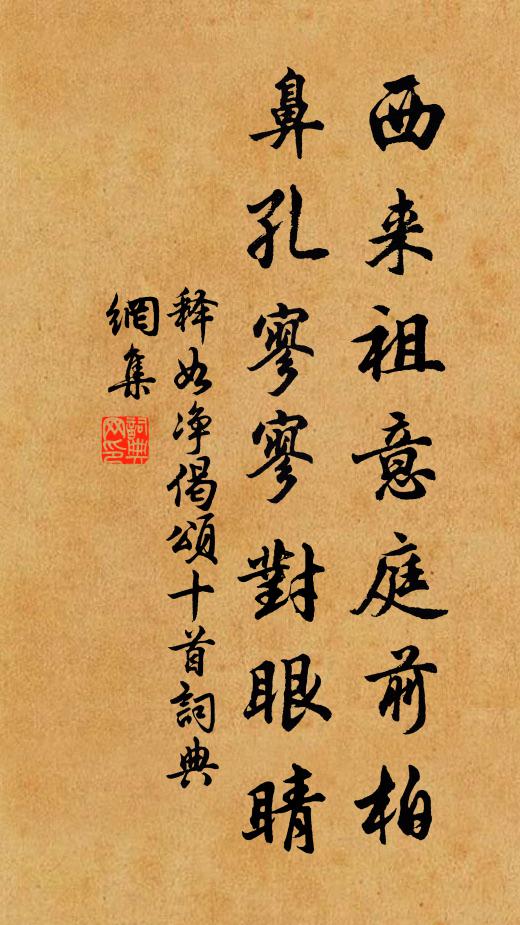 西来祖意庭前柏
鼻孔寥寥對眼睛
释如净偈頌十首詞典
網集
詞典網印